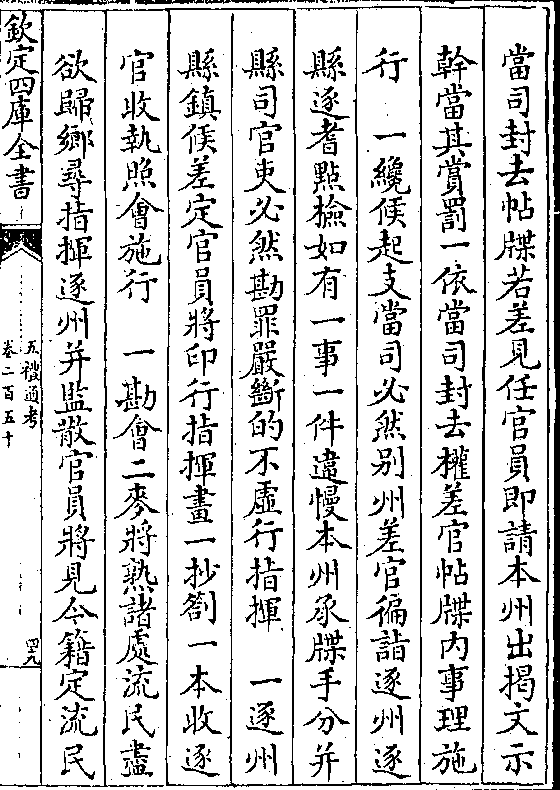 當司封去帖牒若差見任官員即請本州出揭文示
幹當其賞罰一依當司封去權差官帖牒内事理施
行　一纔候起支當司必然别州差官徧詣逐州逐
縣逐耆點檢如有一事一件違慢本州承牒手分并
縣司官吏必然勘罪嚴斷的不虛行指揮　一逐州
縣鎮候差定官員將印行指揮畫一抄劄一本收逐
官收執照會施行　一勘會二麥將熟諸處流民盡
欲歸鄉尋指揮逐州并監散官員將見今籍定流民
欽定四庫全書
五禮通考
卷二百五十
四九